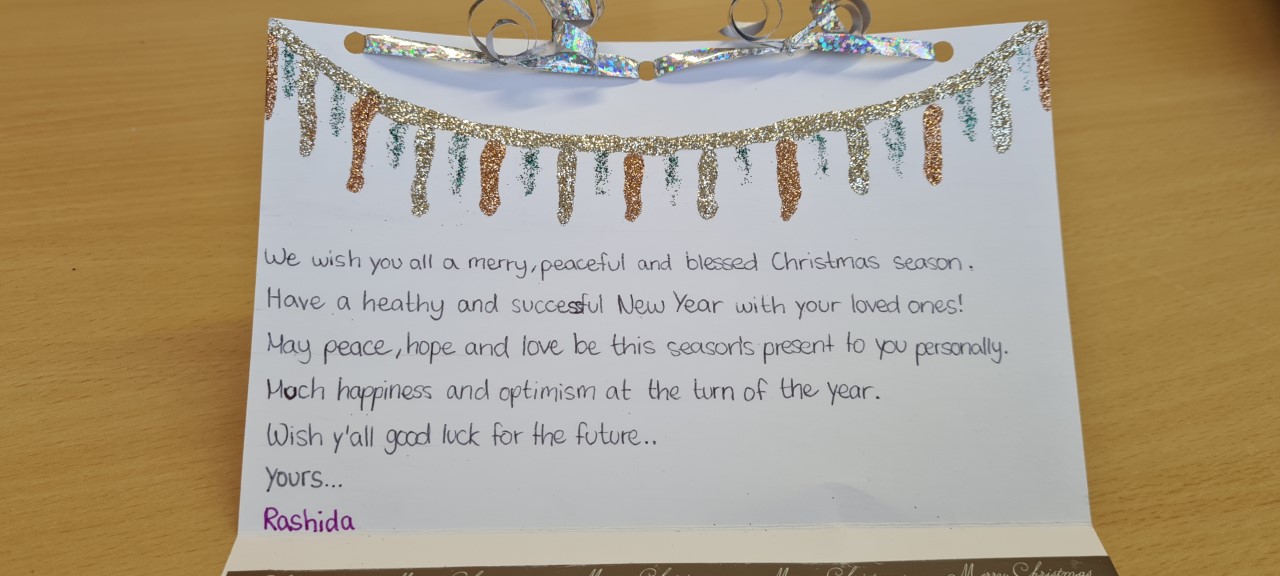 We wish you all a merry, peaceful and blessed Christmas season.
Have a heathy and successful New Year with your loved ones!
May peace, hope and love be this season's present to you personally.
Much happiness and optimism at the turn of the year.
Wish y'all good luck for the future..
Yours...
Rashida
Merry Christmas